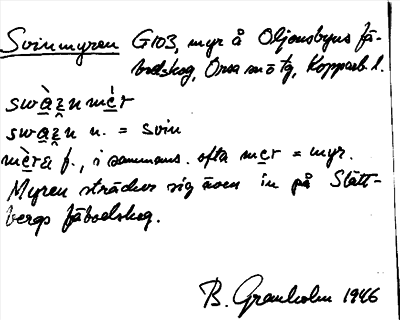 Svinmyren G103, myr å Oljonsbyns fä-
bodskog, Orsa sn ö tg, Kopparb. l.
swà̱z̯n mè̱r
swa̱z̯n n. = svin
mè̱ra f., i sammans. ofta me̱r = myr.
Myren sträcker sig även in på Slätt-
bergs fäbodskog.
B. Granholm 1946